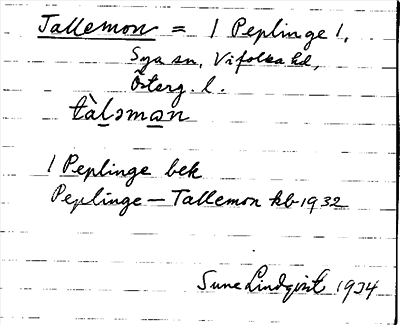 Tallemon = 1 Peplinge 1,
Sya sn, Vifolka hd,
Österg. l.
tàl̲əma̲n
1 Peplinge bek
Peplinge — Tallemon kb 1932
Sune Lindqvist 1934